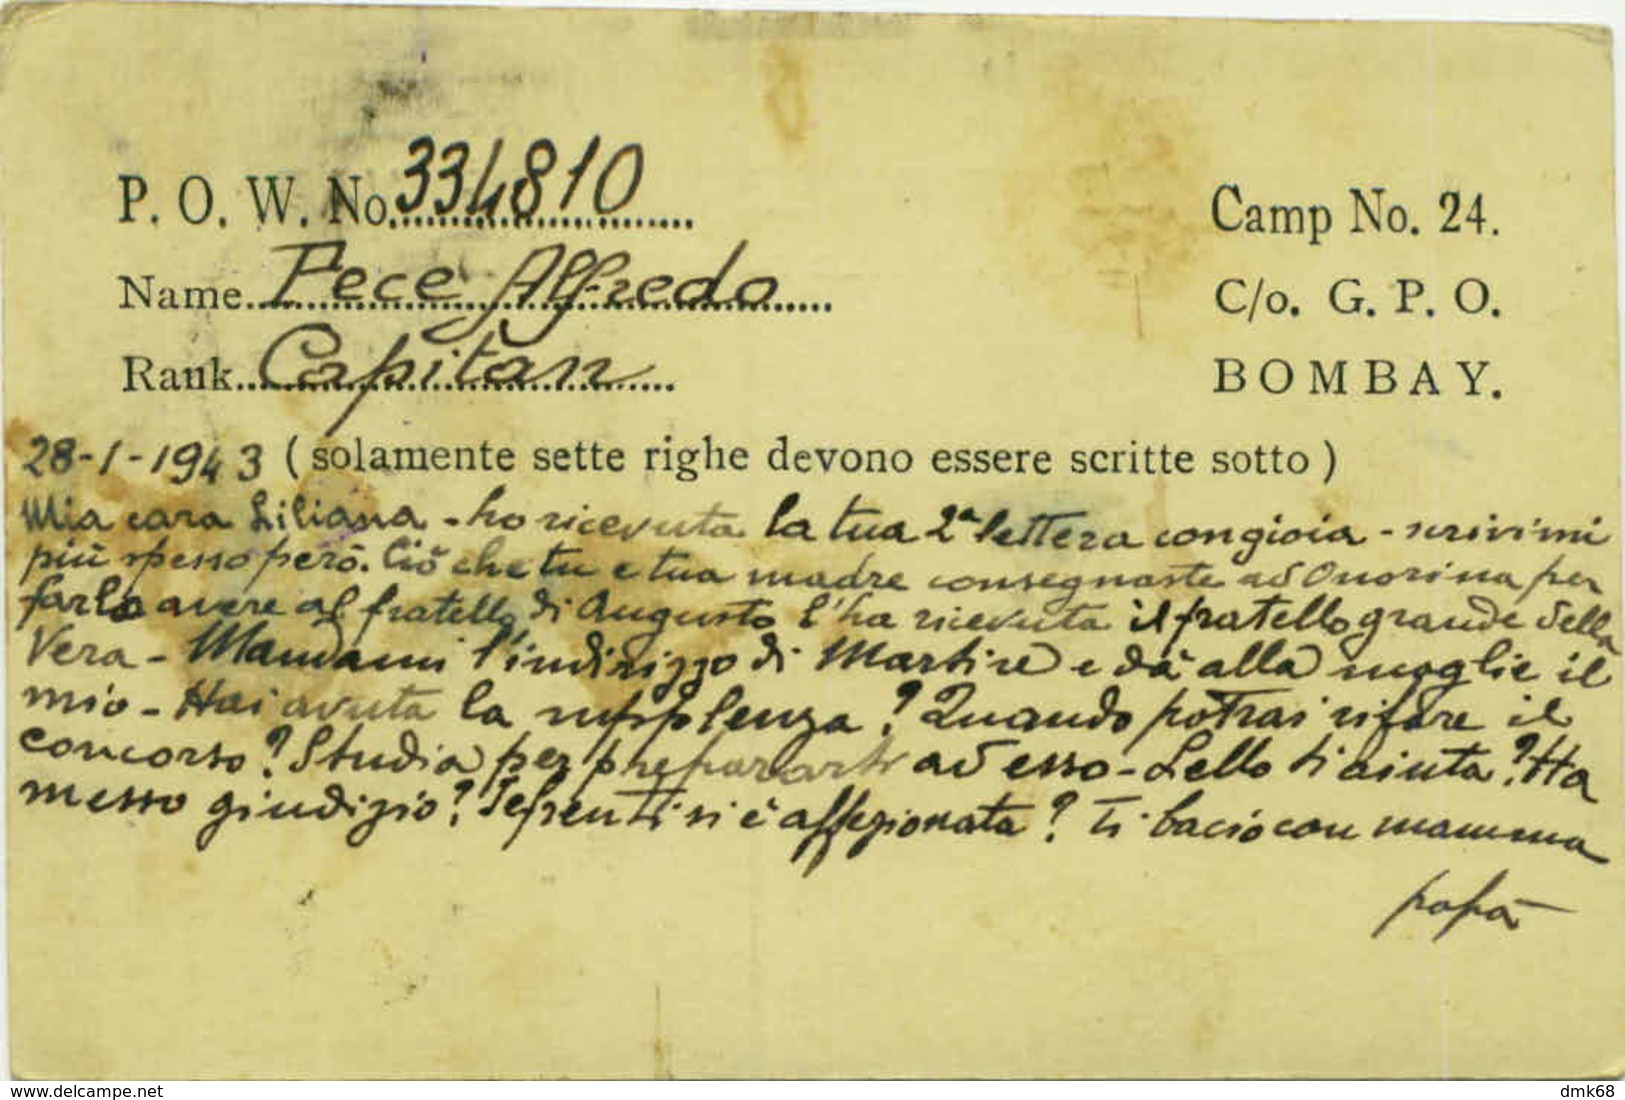 P. O. W. No. 334810
Camp No. 24.
Name Fece Alfredo
C/o. G. P. O.
Rank Capitan
BOMBAY.
28-1-1943 (solamente sette righe devono essere scritte sotto)
Mia cara Liliana - ho ricevuta la tua 2ª lettera con gioia - scrivimi
più spesso però. Ciò che tu e tua madre consegnaste ad Onorina per
farlo avere al fratello di Augusto l'ha ricevuta il fratello grande della
Vera - Mandami l'indirizzo di Martire e dà alla moglie il
mio - Hai avuta la supplenza? Quando potrai rifare il
concorso? Studia per prepararti ad esso - Lello ti aiuta? Ha
messo giudizio? si è affezionata? Ti bacio con mamma
papà
www.delcampe.net
dmk68